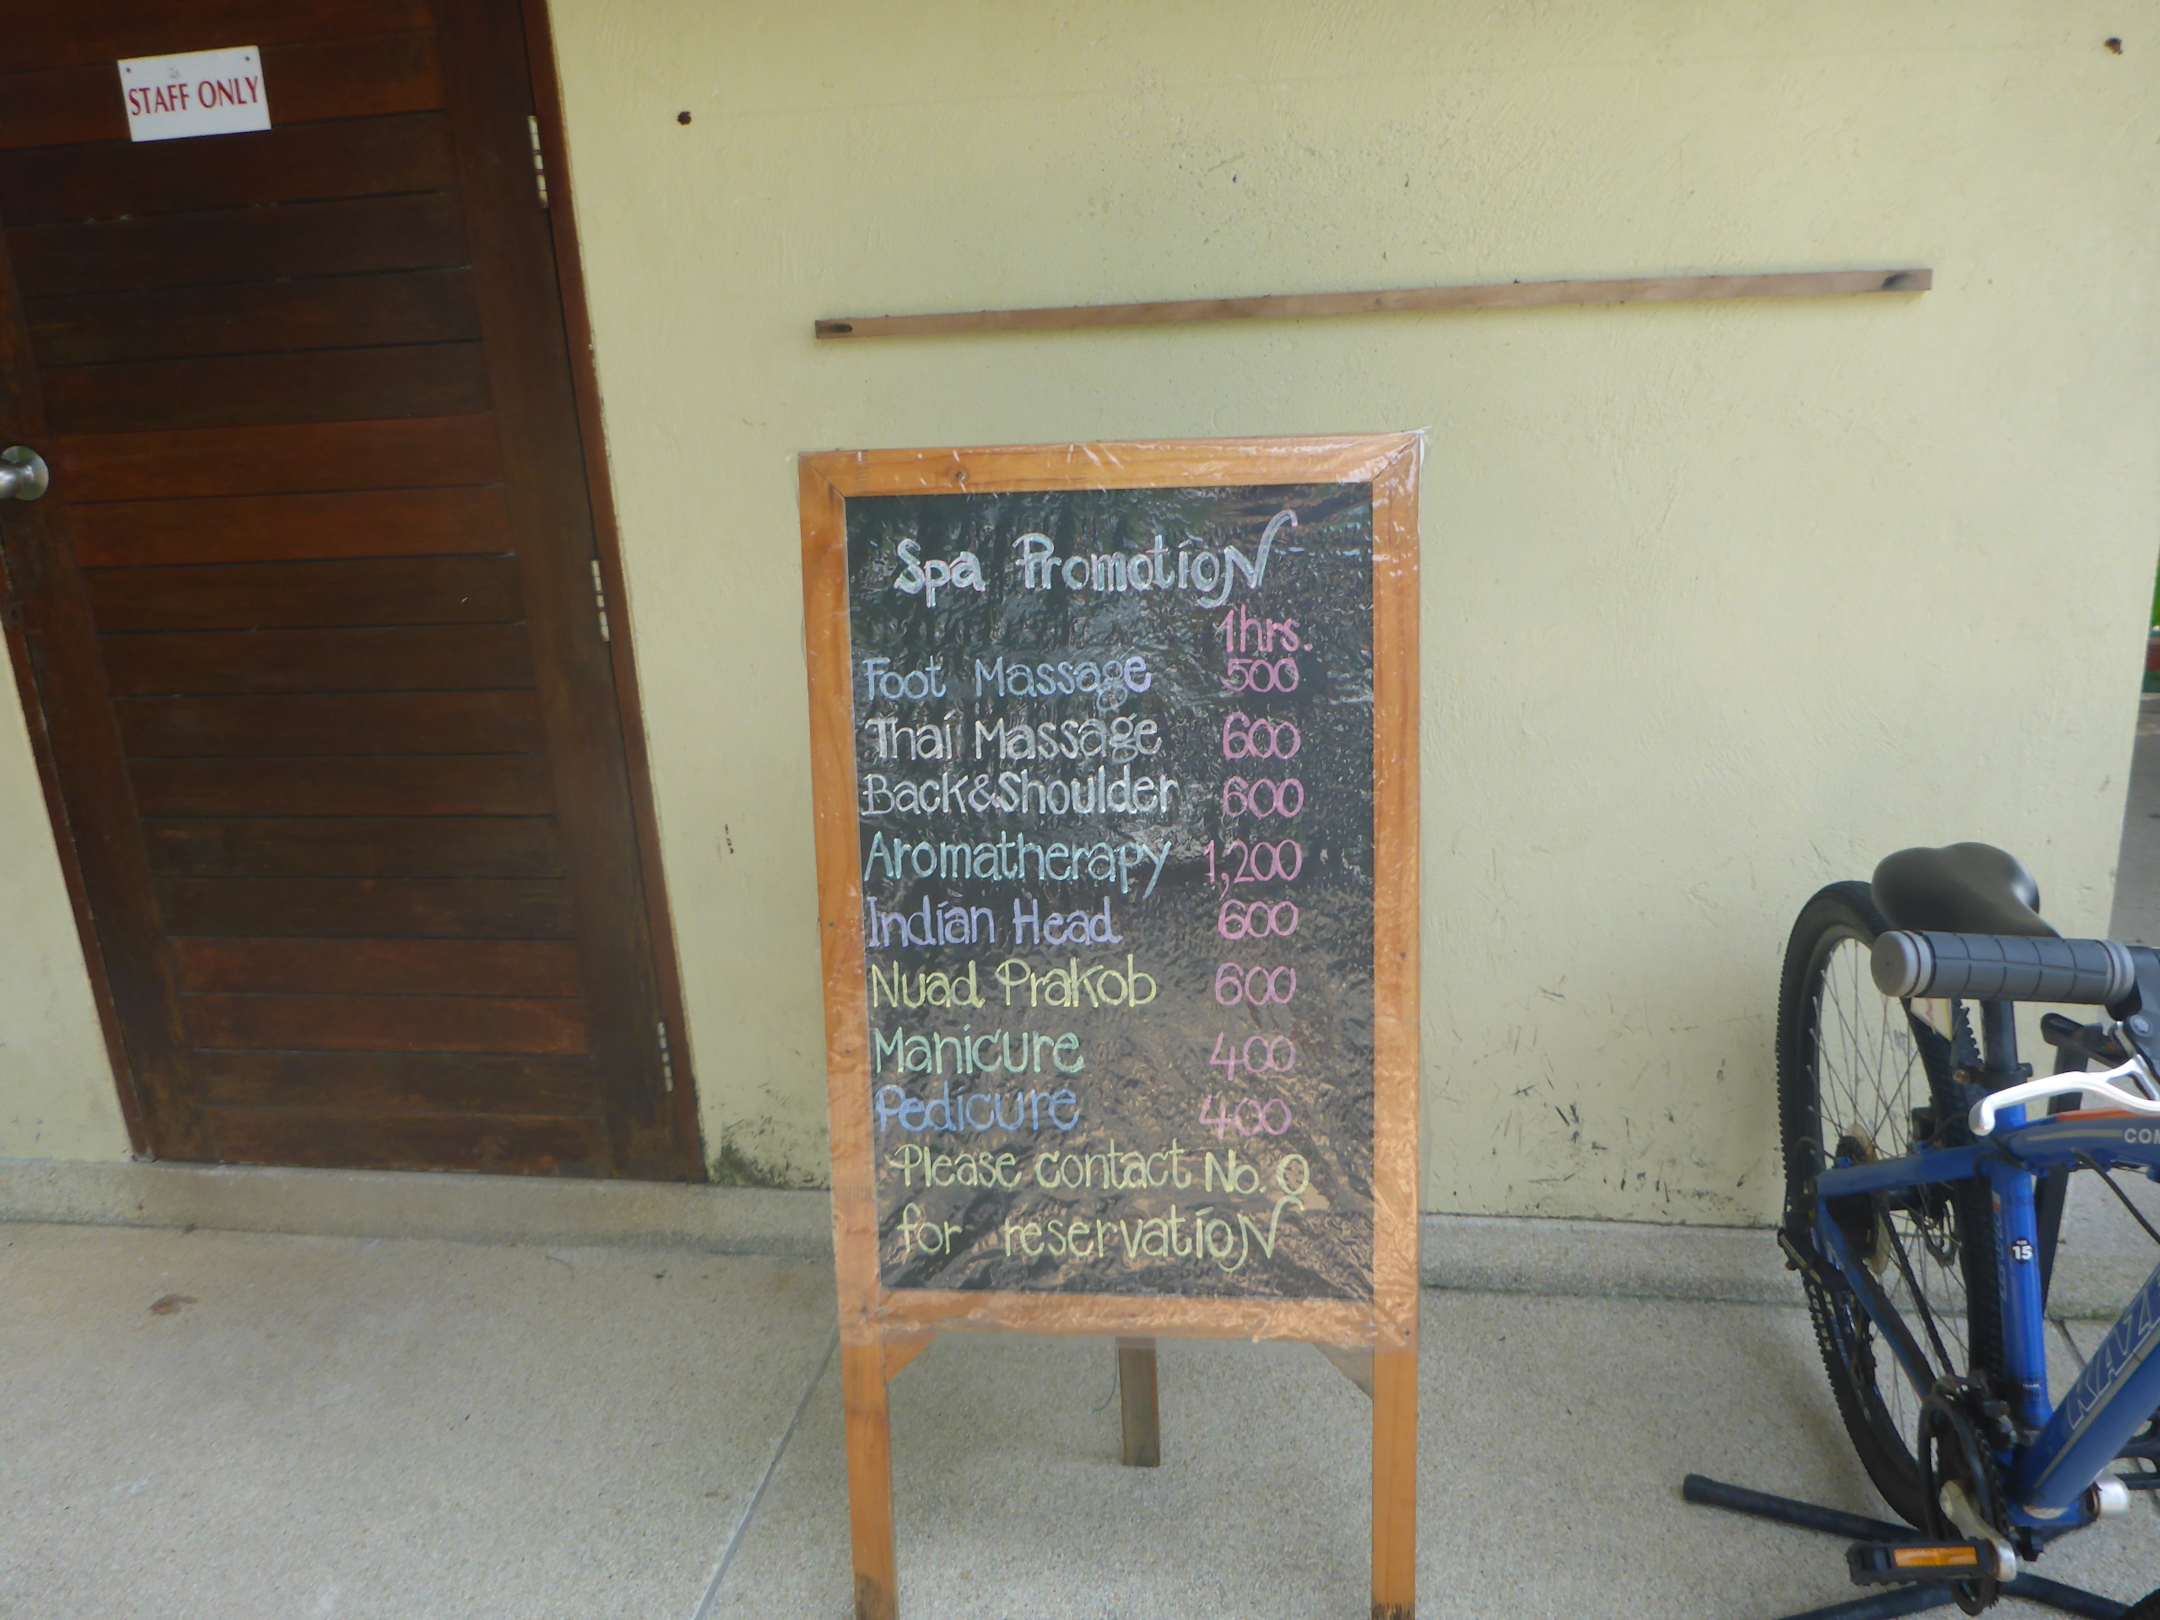 STAFF ONLY
Spa Promotion
1hrs.
Foot Massage 500
Thai Massage 600
Back&Shoulder 600
Aromatherapy 1,200
Indian Head 600
Nuad Prakob 600
Manicure 400
Pedicure 400
Please contact No. 0
for reservation
15